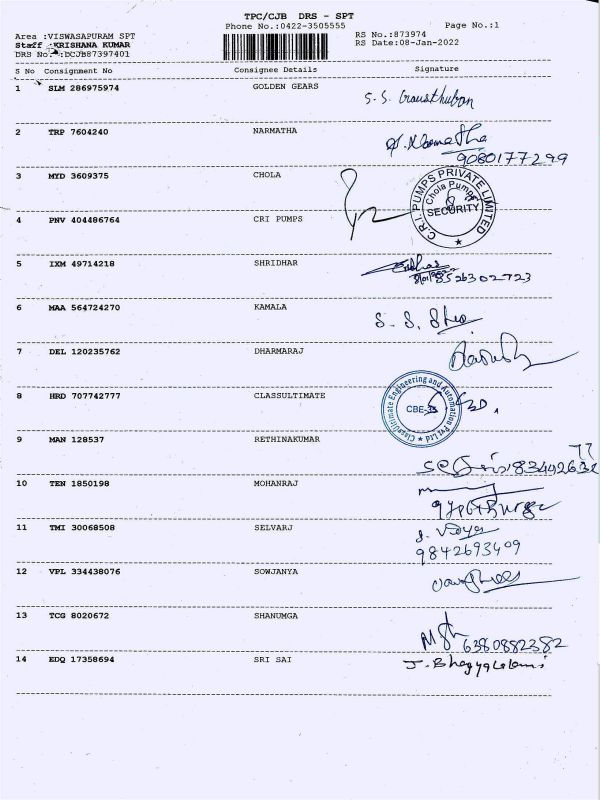 TPC/CJB DRS - SPT
Phone No.:0422-3505555
Page No.:1
Area :VISWASAPURAM SPT
Staff :KRISHANA KUMAR
DRS No.:DCJB87397401
RS No.:873974
RS Date:08-Jan-2022
S No Consignment No Consignee Details Signature
1 SLM 286975974 GOLDEN GEARS
2 TRP 7604240 NARMATHA
9080177299
3 MYD 3609375 CHOLA
C.R.I PUMPS PRIVATE LIMITED
Chola Pumps
SECURITY
4 PNV 404486764 CRI PUMPS
5 IXM 49714218 SHRIDHAR
8526302723
6 MAA 564724270 KAMALA
S. S.
7 DEL 120235762 DHARMARAJ
8 HRD 707742777 CLASSULTIMATE
Classultimate Engineering and Automation Pvt Ltd
CBE-35
9 MAN 128537 RETHINAKUMAR
10 TEN 1850198 MOHANRAJ
11 TMI 30068508 SELVARJ
9842693409
12 VPL 334438076 SOWJANYA
13 TCG 8020672 SHANUMGA
6380882382
14 EDQ 17358694 SRI SAI